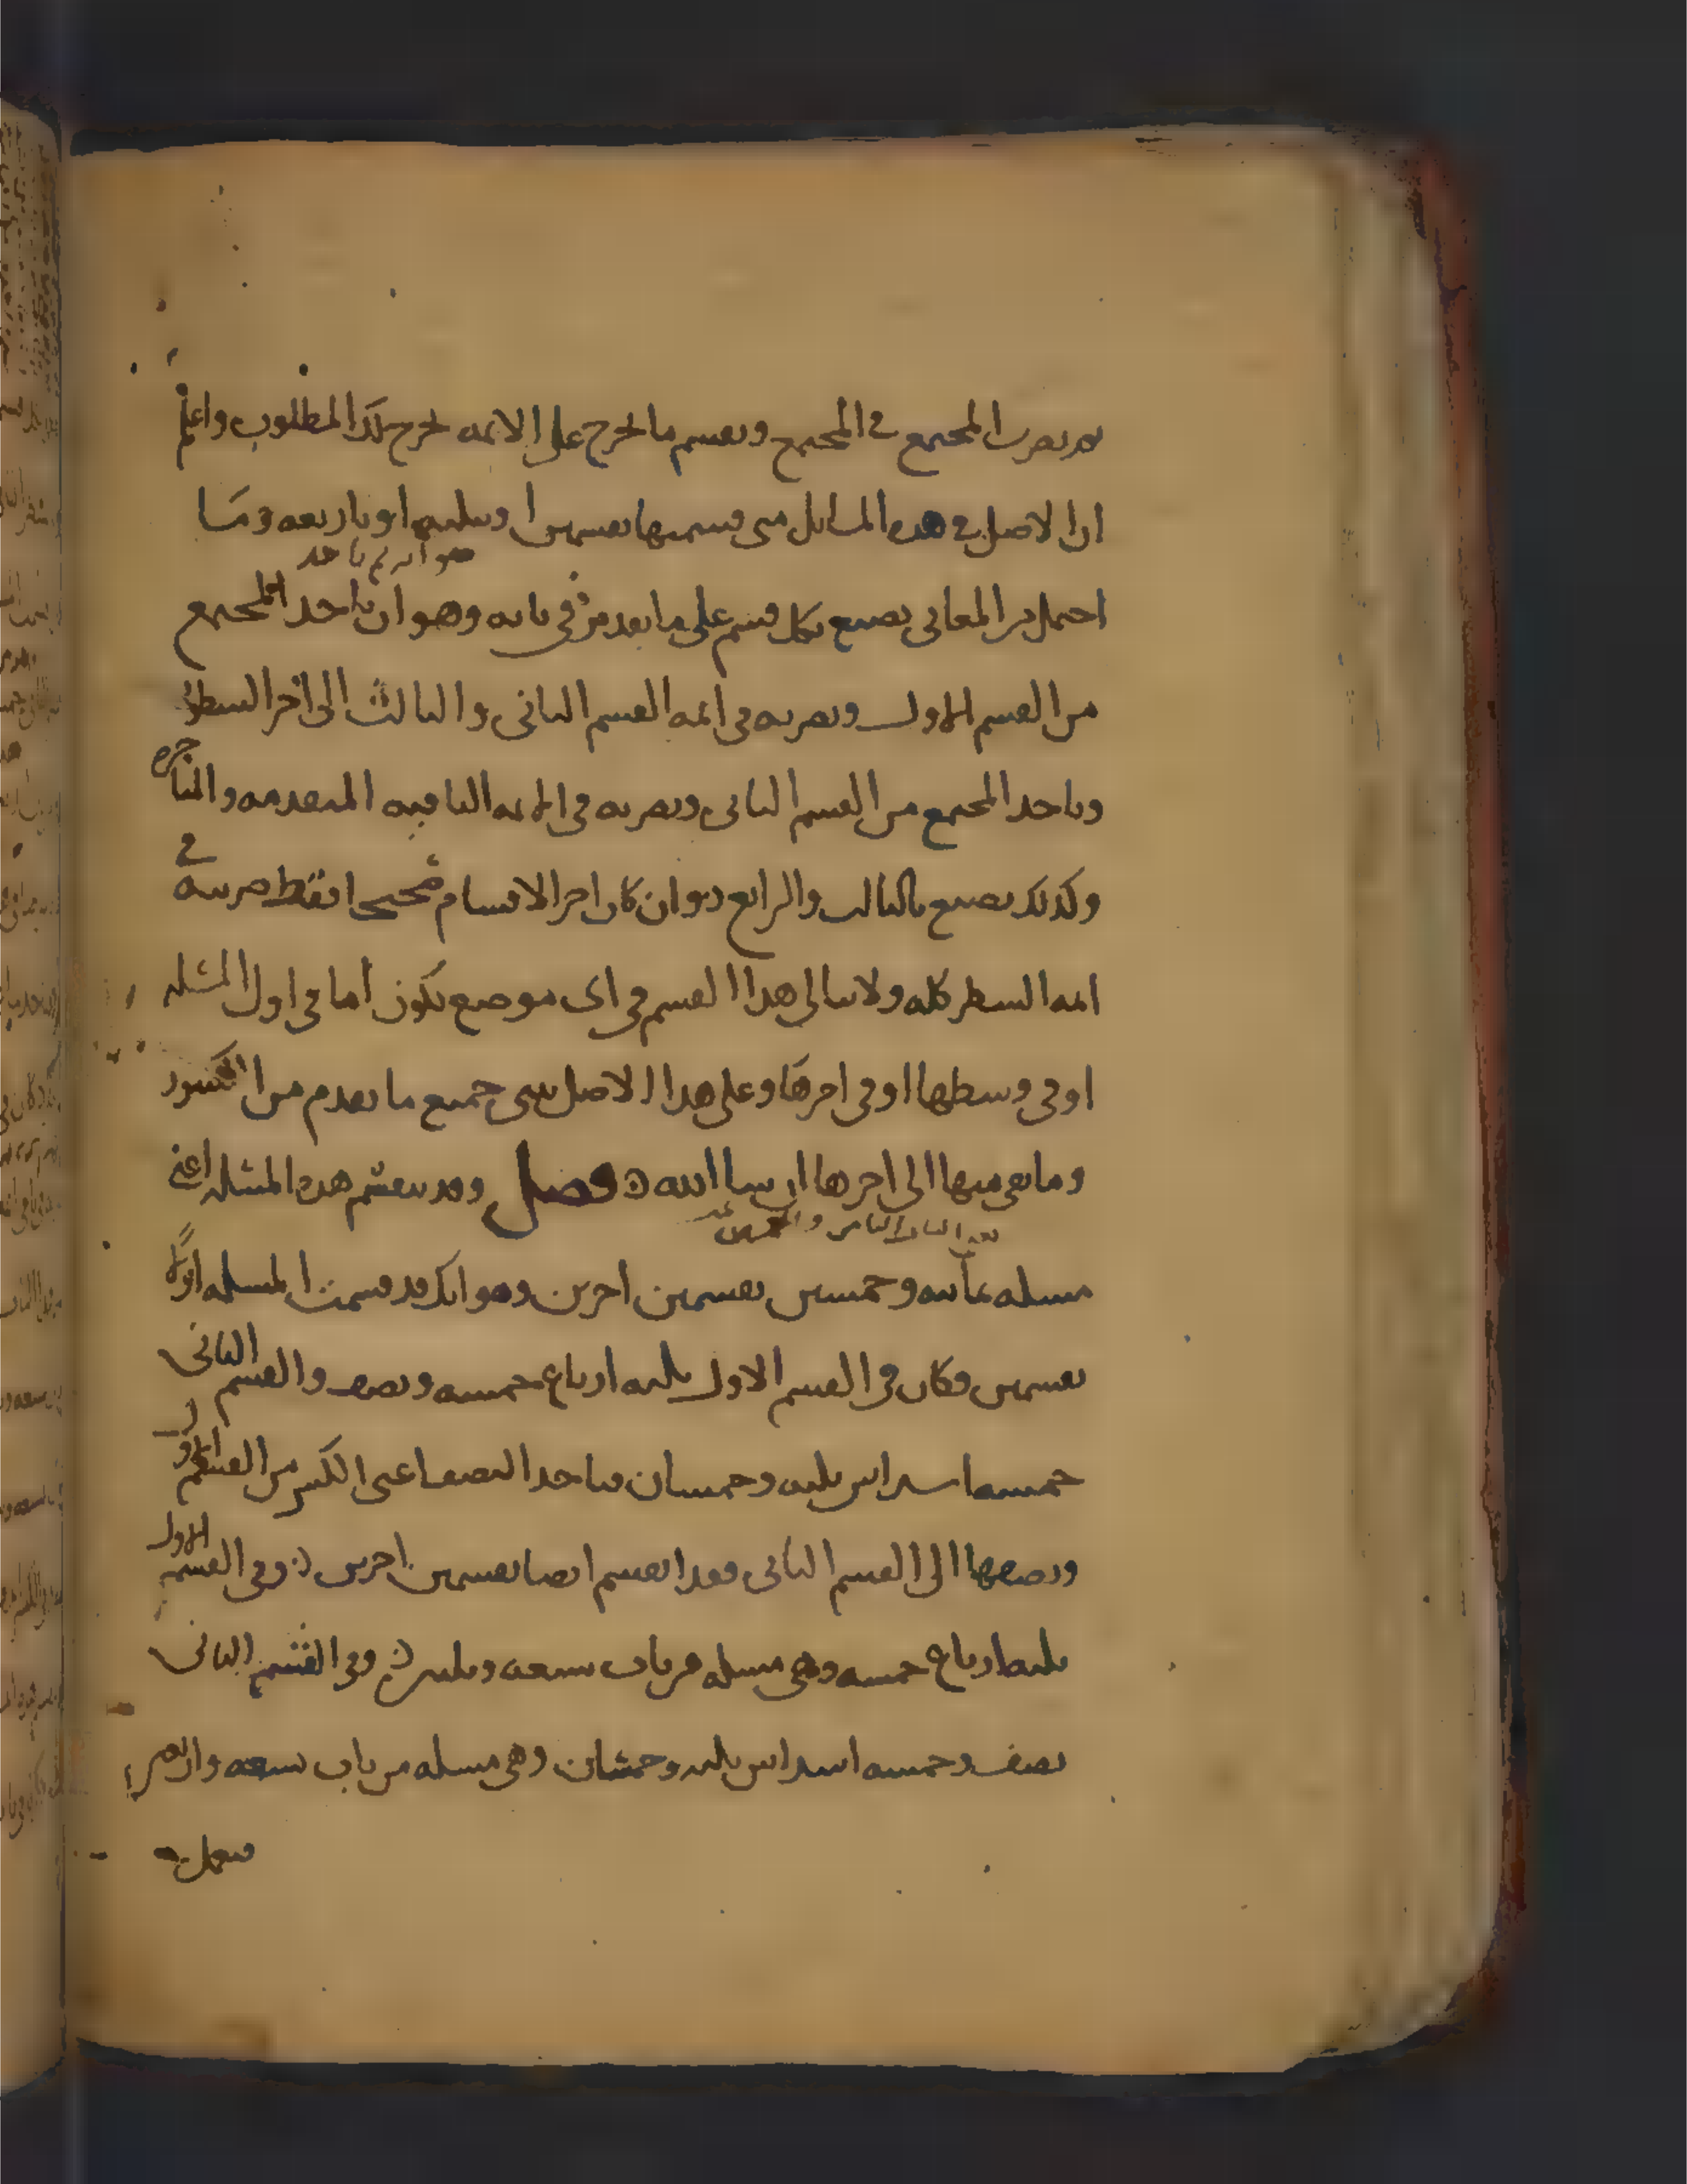 ثم تضرب المجتمع في المجتمع وتقسم ما خرج على الائمه يخرج لك المطلوب واعلم
ان الاصل في هذه المسائل متى قسمتها بقسمين او بثلثه او باربعه وما
هو ان تاخد
احتمل من المعاني تصنع بكل قسم على ما تقدم في بابه وهو ان تاخد المجتمع
من القسم الاول وتضربه في ائمه القسم الثاني والثالث الى اخر السطر
وتاخد المجتمع من القسم الثاني وتضربه في الائمه الباقيه المتقدمه والمتاخره
وكذلك تصنع بالثالث والرابع وان كان احد الاقسام صحيحا فقط ضربته في
ائمه السطر كله ولا تبالي هذا القسم في اى موضع يكون اما في اول المسله
او في وسطها او في اخرها وعلى هذا الاصل جميع ما تقدم من الكسور
وما بقي منها الى اخرها ان شا الله فصل وقد تنقسم هذه المسله اعني
الثامن
مسله ثمانيه وخمسين بقسمين اخرين وهو انك قد قسمت المسله اولا
بقسمين فكان في القسم الاول ثلثه ارباع خمسه ونصف والقسم الثاني
خمسه اسداس ثلثه وخمسان فتاخد النصف اعني الكسر من القسم الاول
وتضعها الى القسم الثاني فغدا تقسم ايضا بقسمين اخرين وفي القسم الاول
ثلثه ارباع خمسه وهي مسله من باب سبعه وثلثين وفي القسم الثاني
نصف وخمسه اسداس ثلثه وخمسان وهي مسله من باب سبعه واربعين